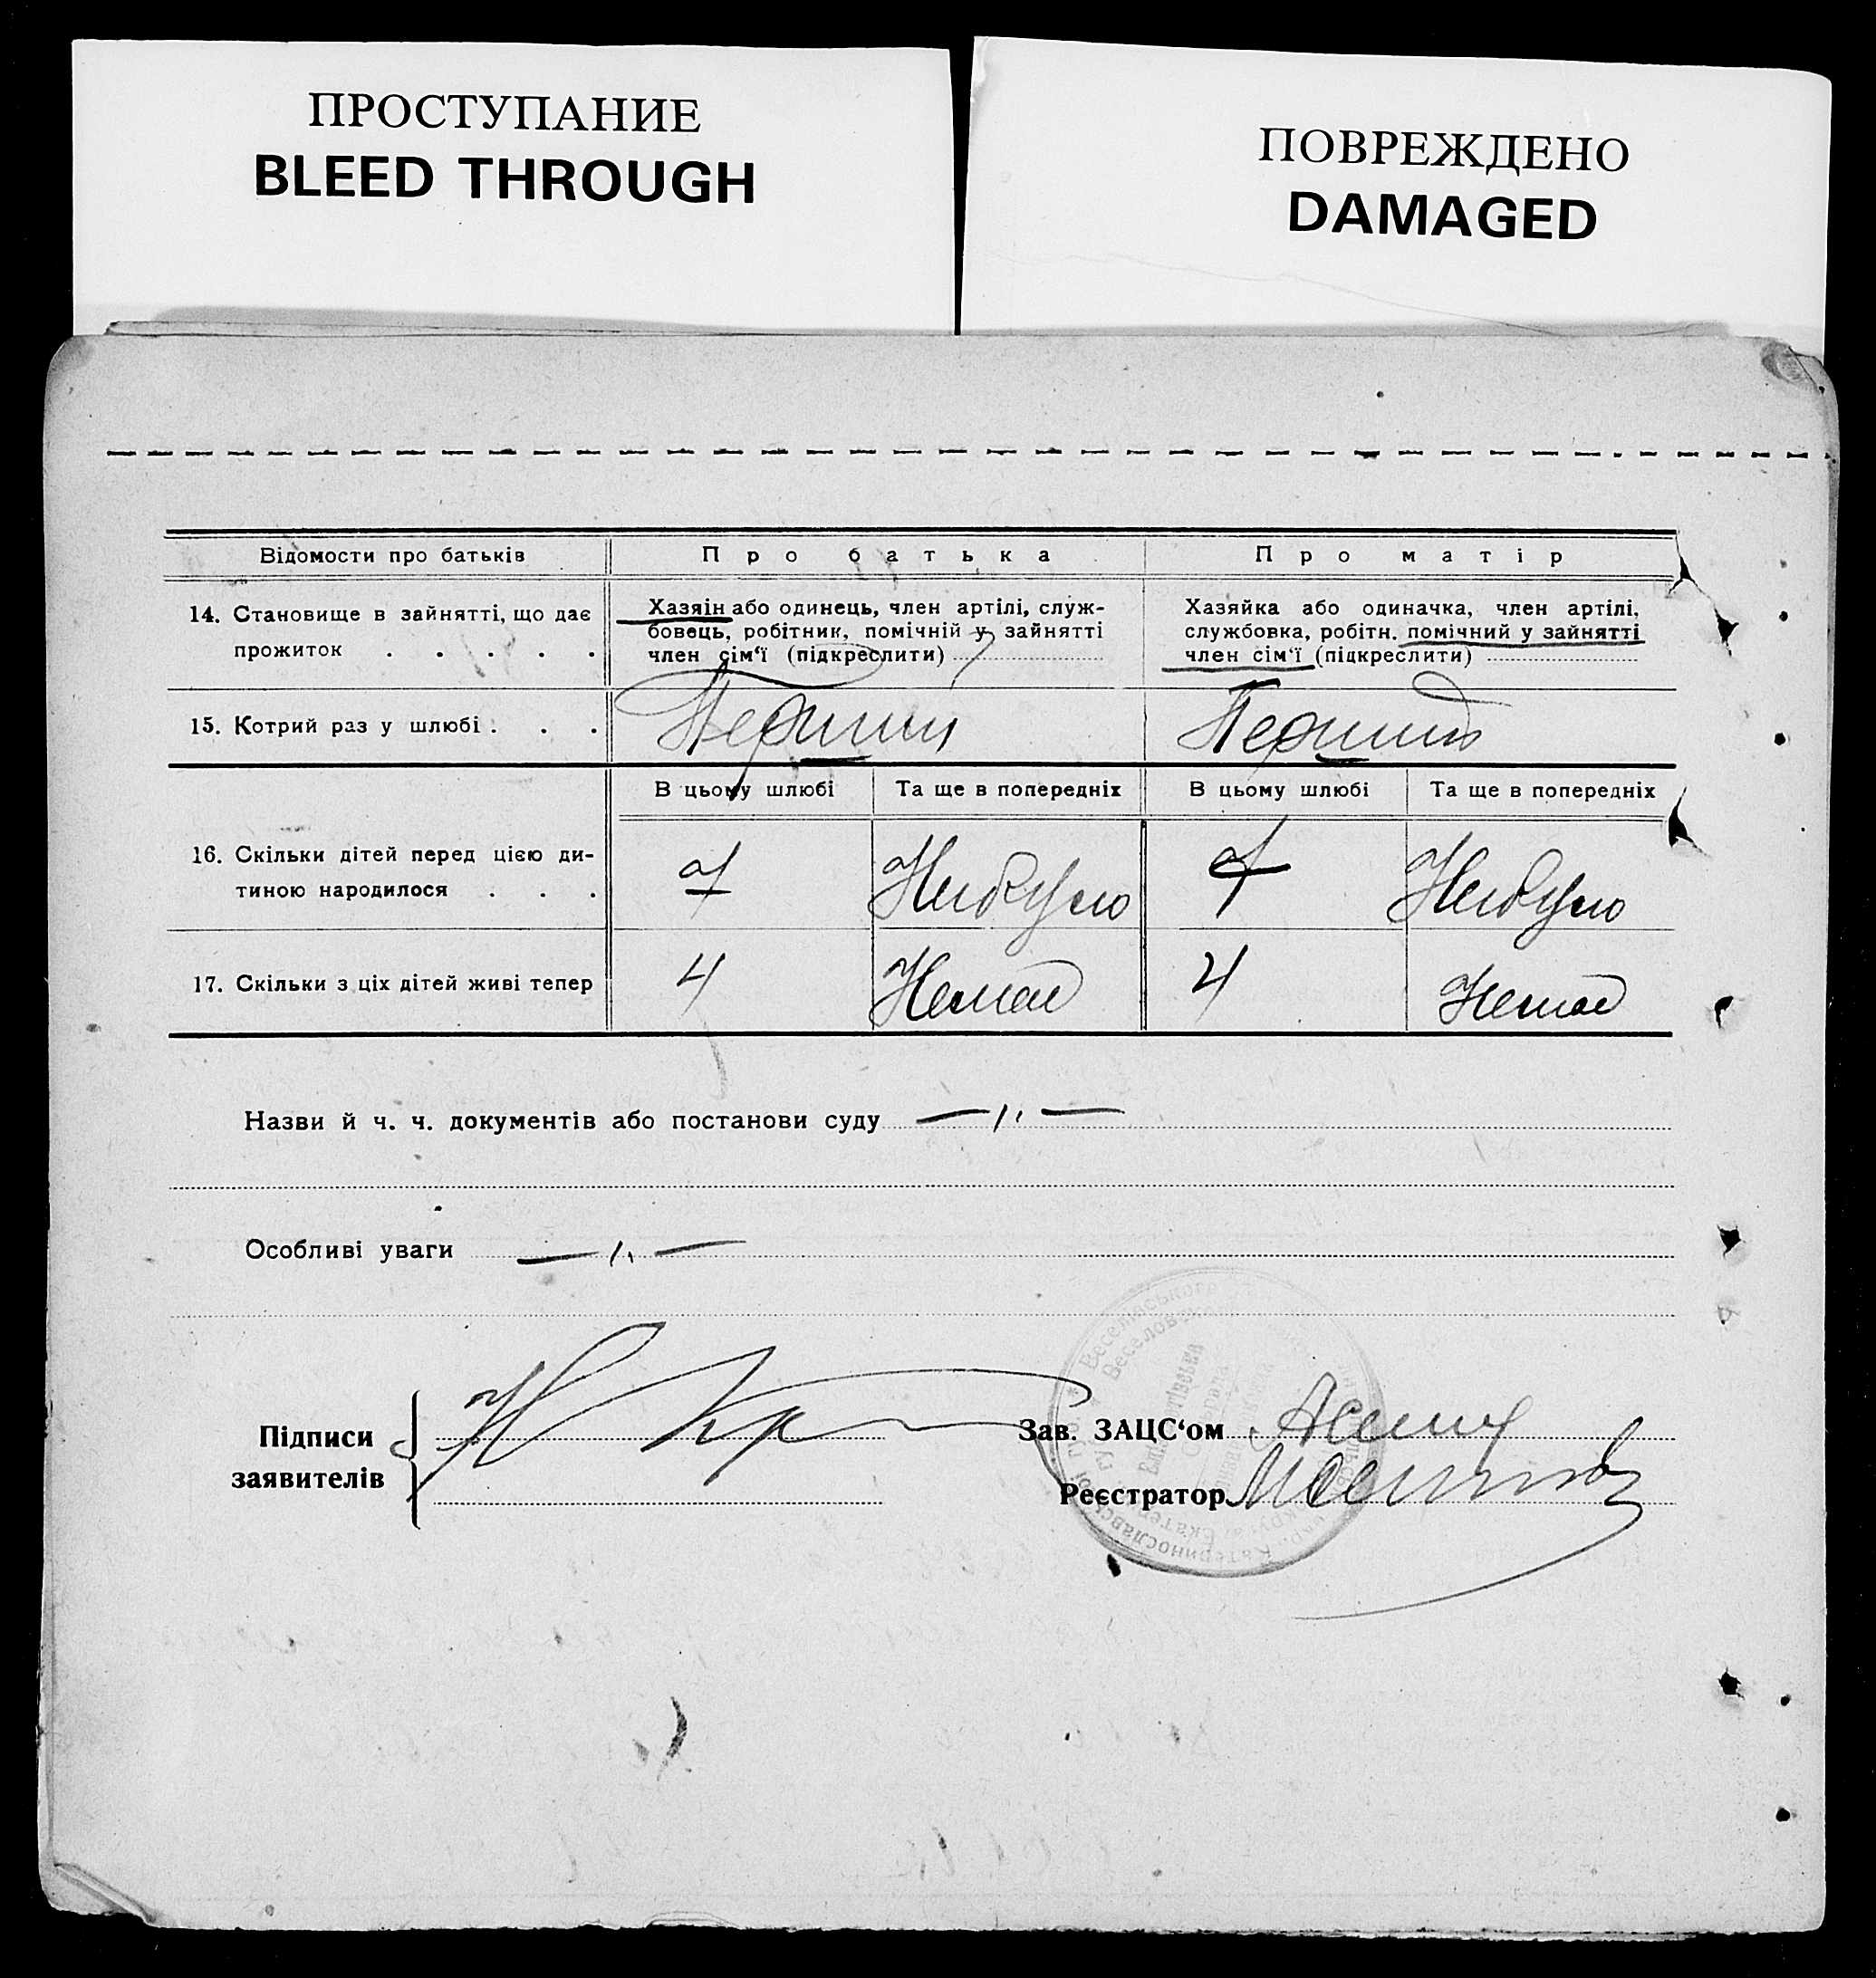 ПРОСТУПАНИЕ
BLEED THROUGH
ПОВРЕЖДЕНО
DAMAGED
Відомости про батьків
Про батька
Про матір
14. Становище в зайнятті, що дає
прожиток . . . . .
Хазяін або одинець, член артілі, служ-
бовець, робітник, помічній у зайнятті
член сім‘ї (підкреслити)
Хазяйка або одиначка, член артілі,
службовка, робітн. помічний у зайнятті
член сім‘ї (підкреслити)
15. Котрий раз у шлюбі . . .
Перший
Перший
В цьому шлюбі
Та ще в попередніх
В цьому шлюбі
Та ще в попередніх
16. Скільки дітей перед цією ди-
тиною народилося . . .
7
Небуло
7
Небуло
17. Скільки з ціх дітей живі тепер
4
Немає
4
Немає
Назви й ч. ч. документів або постанови суду — ,, —
Особливі уваги — ,, —
Підписи
заявителів
Зав. ЗАЦС‘ом
Реєстратор